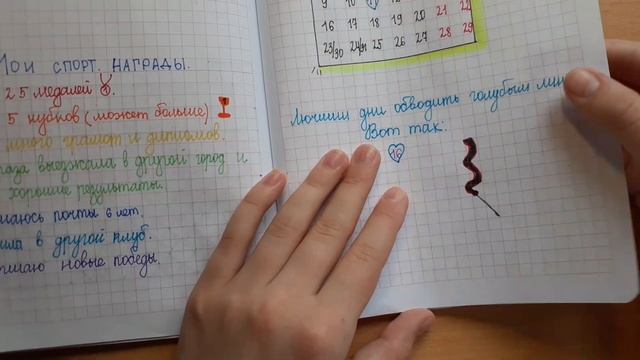 Мои спорт. награды.
25 медалей
5 кубков (может больше)
много грамот и дипломов.
раза выезжала в другой город и
хорошие результаты.
маюсь почты 6 лет.
ила в другой клуб.
новые победы.
9 10 11
16 17 18 19 20 21 22
23/30 24/31 25 26 27 28 29
Лючшии дни обводить голубым
Вот так:
16